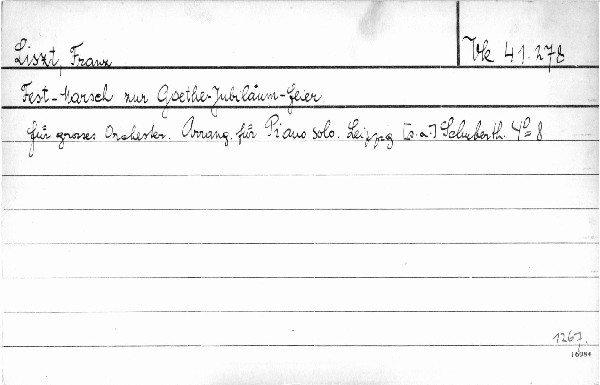 Liszt, Franz
Vk 41.278
Fest-Marsch zur Goethe-Jubiläum-Feier
für grosses Orchester. Arrang. für Piano solo. Leipzig [s.a.] Schuberth. 4° 8
1267.